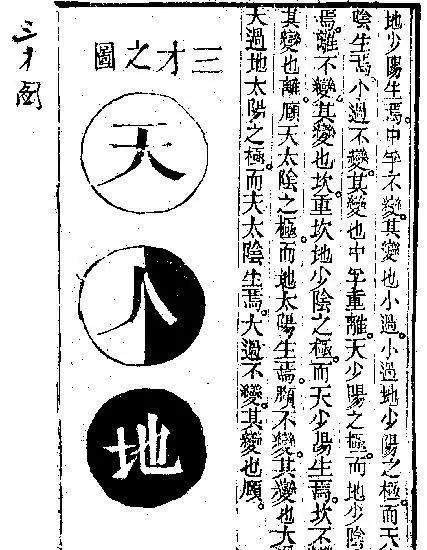 地少陽生焉。中孚不變。其變也小過。小過地少陽之極。而天
陰生焉。小過不變。其變也中孚。重離。天少陽之極。而地少陰
焉。離不變。其變也坎。重坎。地少陰之極。而天少陽生焉。坎不
其變也離。頤。天太陰之極。而地太陽生焉。頤不變。其變也大
大過地太陽之極。而天太陰生焉。大過不變。其變也頤。
三才之圖
天
人
地
三才图